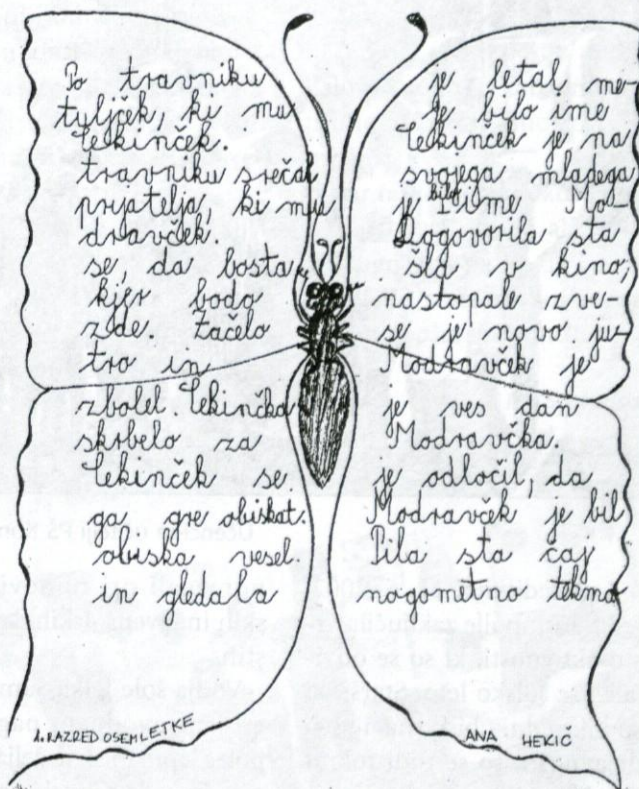 Po travniku je letal me-
tuljček, ki mu je bilo ime
Cekinček. Cekinček je na
travniku srečal svojega mladega
prijatelja, ki mu je bilo ime Mo-
dravček. Dogovorila sta
se, da bosta šla v kino,
kjer bodo nastopale zve-
zde. Začelo se je novo ju-
tro in Modravček je
zbolel. Cekinčka je ves dan
skrbelo za Modravčka.
Cekinček se je odločil, da
ga gre obiskat. Modravček je bil
obiska vesel. Pila sta čaj
in gledala nogometno tekmo
1. RAZRED OSEMLETKE
ANA HEKIČ